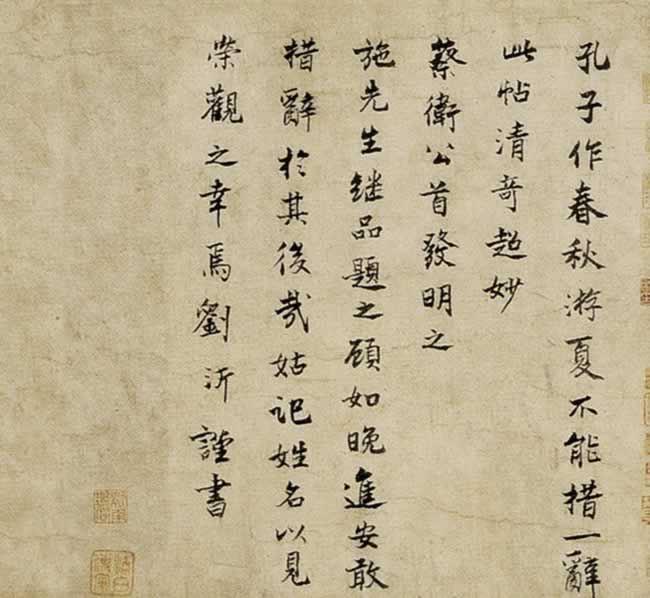 孔子作春秋游夏不能措一辭
此帖清奇超妙
蔡衛公首發明之
施先生继品題之顧如晚進安敢
措辭於其後哉姑記姓名以見
榮觀之幸焉劉沂謹書